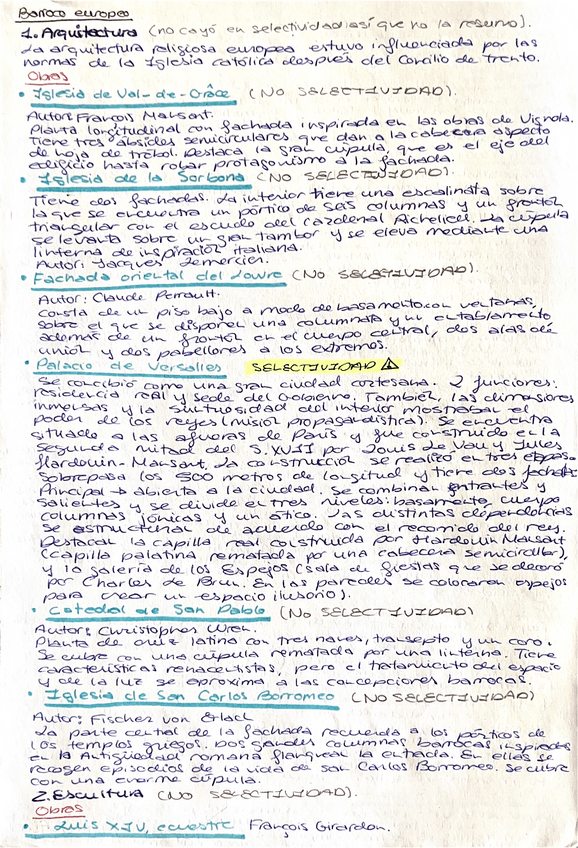 Barroco europeo
1. Arquitectura (no cayó en selectividad así que no la resumo).
La arquitectura religiosa europea estuvo influenciada por las
normas de la Iglesia católica después del Concilio de Trento.
Obras
• Iglesia de Val-de-Grâce (NO SELECTIVIDAD).
Autor: François Mansart.
Planta longitudinal con fachada inspirada en las obras de Vignola.
Tiene tres ábsides semicirculares que dan a la cabecera aspecto
de hoja de trébol. Destaca la gran cúpula, que es el eje del
edificio hasta robar protagonismo a la fachada.
• Iglesia de la Sorbona (NO SELECTIVIDAD).
Tiene dos fachadas. La interior tiene una escalinata sobre
la que se encuentra un pórtico de seis columnas y un frontón
triangular con el escudo del cardenal Richelieu. La cúpula
se levanta sobre un gran tambor y se eleva mediante una
linterna de inspiración italiana.
Autor: Jacques Lemercier.
• Fachada oriental del Louvre (NO SELECTIVIDAD).
Autor: Claude Perrault.
Consta de un piso bajo a modo de basamento con ventanas,
sobre el que se disponen una columnata y un entablamento
además de un frontón en el cuerpo central, dos alas de
unión y dos pabellones a los extremos.
• Palacio de Versalles SELECTIVIDAD ⚠
Se concibió como una gran ciudad cortesana. 2 funciones:
residencia real y sede del Gobierno. También, las dimensiones
inmensas y la suntuosidad del interior mostraban el
poder de los reyes (misión propagandística). Se encuentra
situado a las afueras de París y fue construido en la
segunda mitad del S.XVII por Louis Le Vau y Jules
Hardouin-Mansart. La construcción se realizó en tres etapas.
Sobrepasa los 500 metros de longitud y tiene dos fachadas
Principal → abierta a la ciudad. Se combinan entrantes y
salientes y se divide en tres niveles: basamento, cuerpo
columnas jónicas y un ático. Las distintas dependencias
se estructuran de acuerdo con el recorrido del rey.
Destacan la capilla real construida por Hardouin Mansart
(capilla palatina rematada por una cabecera semicircular),
y la galería de los Espejos (sala de fiestas que se decoró
por Charles de Brun. En las paredes se colocaron espejos
para crear un espacio ilusorio).
• Catedral de San Pablo (NO SELECTIVIDAD)
Autor: Christopher Wren.
Planta de cruz latina con tres naves, transepto y un coro.
Se cubre con una cúpula rematada por una linterna. Tiene
características renacentistas, pero el tratamiento del espacio
y de la luz se aproxima a las concepciones barrocas.
• Iglesia de San Carlos Borromeo (NO SELECTIVIDAD)
Autor: Fischer von Erlach
La parte central de la fachada recuerda a los pórticos de
los templos griegos. Dos grandes columnas barrocas inspiradas
en la Antigüedad romana flanquean la entrada. En ellas se
recogen episodios de la vida de san Carlos Borromeo. Se cubre
con una enorme cúpula.
2. Escultura (NO SELECTIVIDAD).
Obras
• Luis XIV, ecuestre François Girardon.